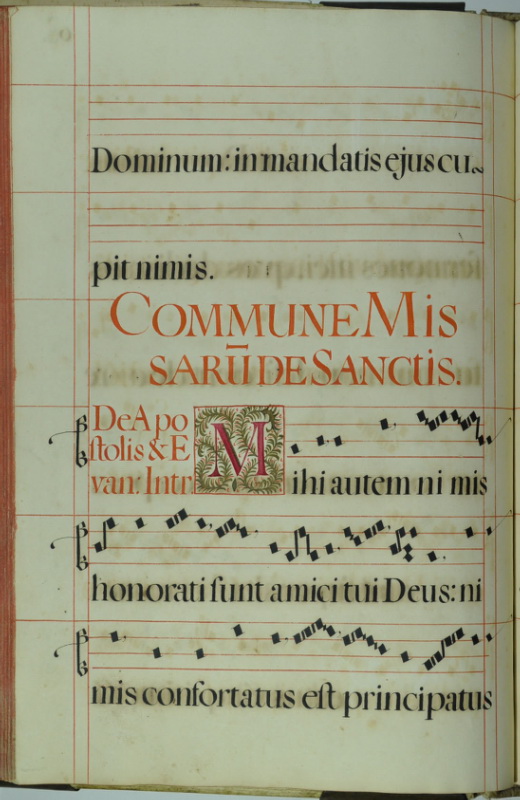 Dominum: in mandatis ejus cu~
pit nimis.
COMMUNE MIS
SARŪ DE SANCTIS.
De Apo
ſtolis & E
van: Intr
Mihi autem ni mis
honorati ſunt amici tui Deus: ni
mis confortatus eſt principatus